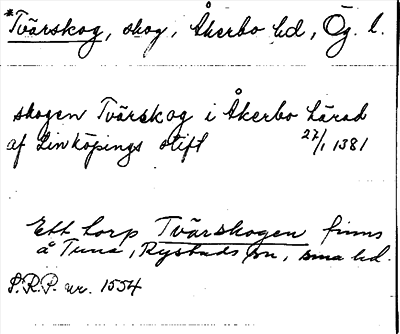 *Tvärskog, skog, Åkerbo hd, Ög. l.
skogen Tvärskog i Åkerbo härad
af Linköpings stift 27/1 1381
Ett torp Tvärskogen finns
å Tuna, Rystads sn, sma hd.
S.R.P. nr. 1554